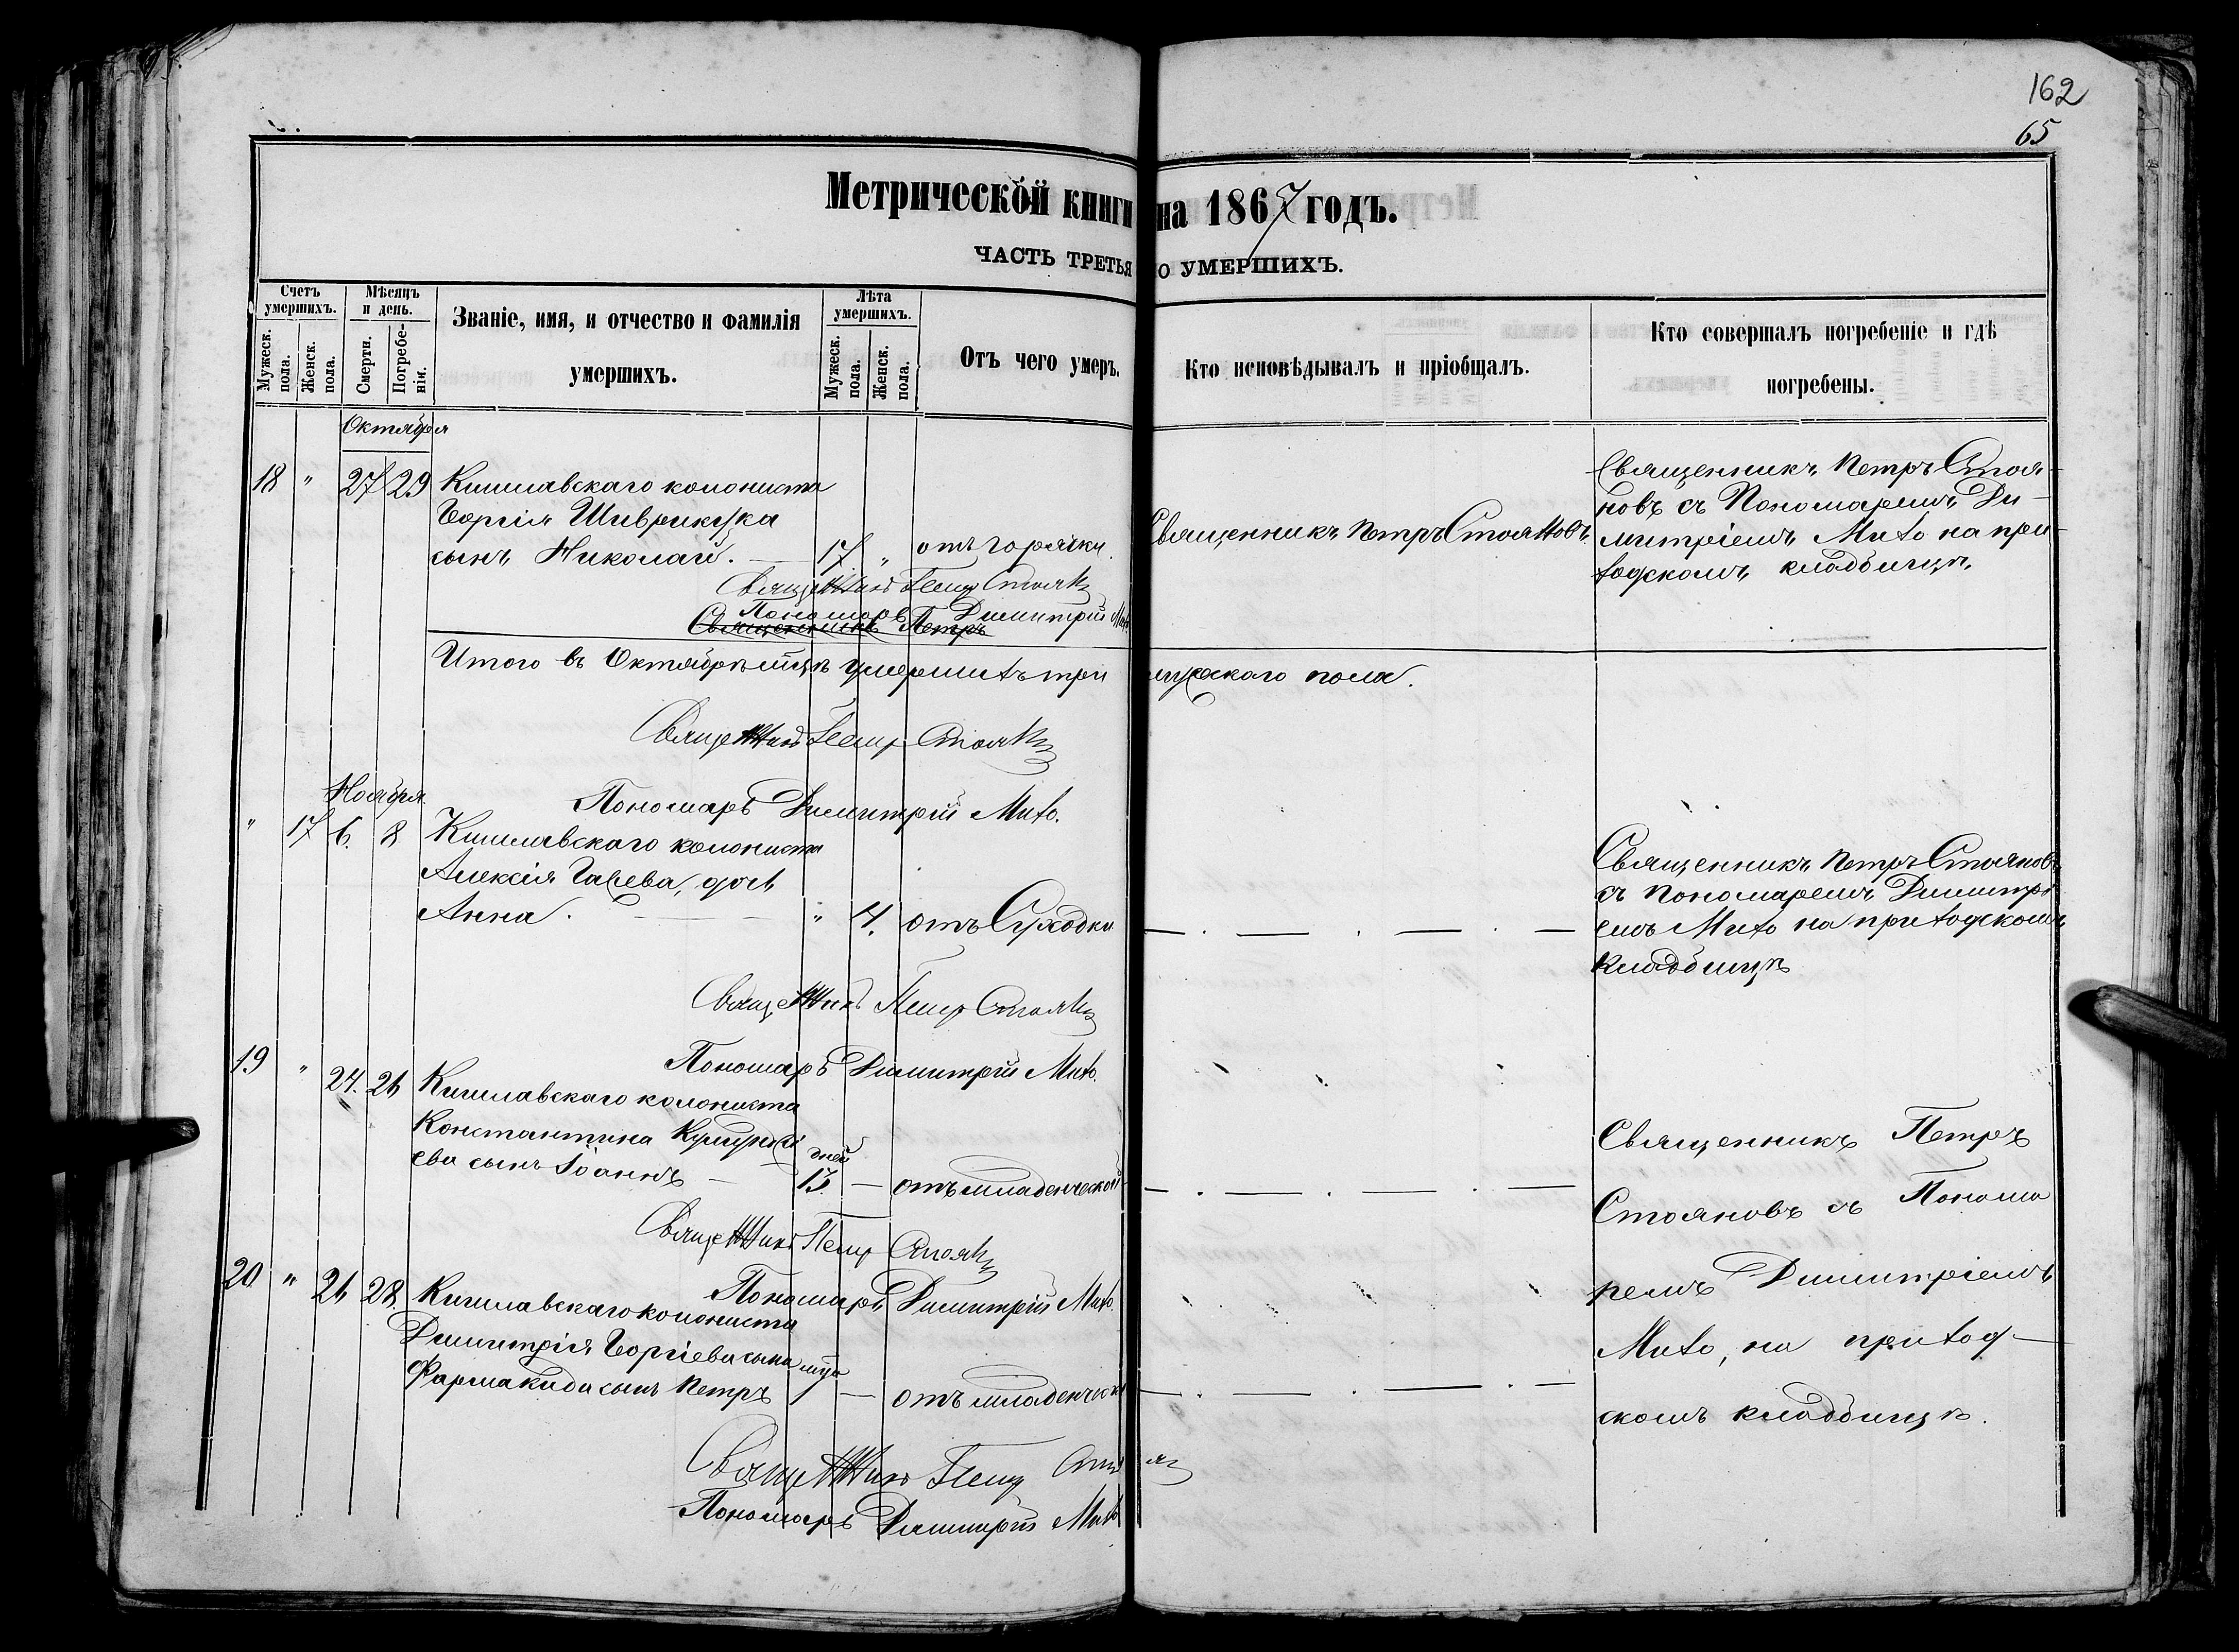 162
65
Метрической книги на 1867 годъ.
ЧАСТЬ ТРЕТЬЯ О УМЕРШИХЪ.
Счетъ умершихъ.
Мужеск. пола.
Женск. пола.
Мѣсяцъ и день.
Смерти.
Погребе-нія.
Званіе, имя, и отчество и фамилія
умершихъ.
Лѣта умершихъ.
Мужеск. пола.
Женск. пола.
Отъ чего умеръ.
Кто исповѣдывалъ и пріобщалъ.
Кто совершалъ погребеніе и гдѣ
погребены.
Октября
18 " 27 29 Кишлавскаго колониста
Георгія
сынъ Николай. — 17 " отъ горячки.
Священникъ Петръ Стояновъ.
Священникъ Петръ Стоя-
новъ съ Пономаремъ Ди-
митріемъ Михо на при-
ходскомъ кладбищѣ.
Священникъ Петръ Стояновъ
Пономарь Димитрій Михо
Священникъ Петръ
Итого въ Октябрѣ мцѣ умершихъ три мужскаго пола.
Священникъ Петръ Стояновъ
Ноября
Пономарь Димитрій Михо.
" 17 6. 8 Кишлавскаго колониста
Алексія дочь
Анна. — " 4. отъ Сухотки
Священникъ Петръ Стояновъ
съ пономаремъ Димитрі
емъ Михо на приходскомъ
кладбищѣ
Священникъ Петръ Стояновъ
Пономарь Димитрій Михо.
19 " 24. 26 Кишлавскаго колониста
Константина
ева сынъ Іоаннъ — дней 15. — отъ младенческой
Священникъ Петръ Стояновъ
Пономарь Димитрій Михо.
20 " 26 28. Кишлавскаго колониста
Димитрія Георгіева сына
Фармакиди сынъ Петръ мца 1 — отъ младенческ
Священникъ Петръ
Стояновъ съ Понома
ремъ Димитріемъ
Михо, на приход-
скомъ кладбищѣ.
Священникъ Петръ Стояновъ
Пономарь Димитрій Михо